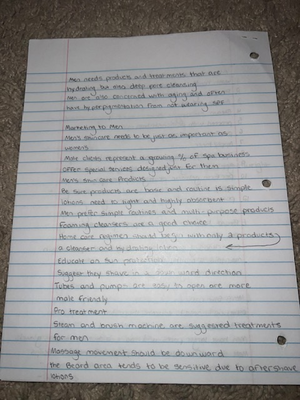 Men needs products and treatments that are
hydrating, but also deep pore cleansing
Men are also concerned with aging and often
have hyperpigmentation from not wearing SPF
Marketing to Men
Men's skincare needs to be just as important as
women's
Male clients represent a growing % of spa business
Offer special services designed just for them
Men's Skin care Products
Be sure products are basic and routine is simple
lotions need to light and highly absorbent
Men prefer simple routines and multi-purpose products
Foaming cleansers are a good choice
Home care regimen should begin with only 2 products
a cleanser and hydrating lotion
Educate on sun protection
Suggest they shave in a down ward direction
Tubes and pumps are easy to open are more
male friendly
Pro treatment
Steam and brush machine are suggested treatments
for men
Massage movement should be downward
the Beard area tends to be sensitive due to aftershave
lotions